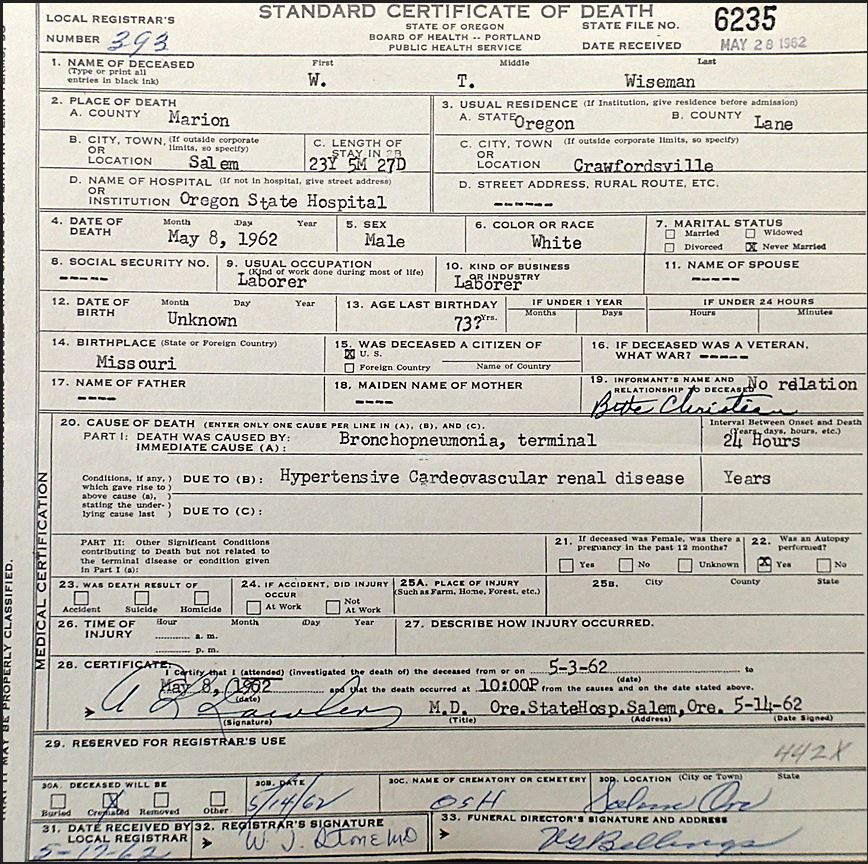 STANDARD CERTIFICATE OF DEATH
LOCAL REGISTRAR'S NUMBER 393
STATE OF OREGON
BOARD OF HEALTH -- PORTLAND
PUBLIC HEALTH SERVICE
STATE FILE NO. 6235
DATE RECEIVED MAY 28 1962
1. NAME OF DECEASED
(Type or print all entries in black ink)
First Middle Last
W. T. Wiseman
2. PLACE OF DEATH
A. COUNTY Marion
3. USUAL RESIDENCE (If Institution, give residence before admission)
A. STATE Oregon B. COUNTY Lane
B. CITY, TOWN, OR LOCATION (If outside corporate limits, so specify) Salem
C. LENGTH OF STAY IN 2B 23Y 5M 27D
C. CITY, TOWN OR LOCATION (If outside corporate limits, so specify) Crawfordsville
D. NAME OF HOSPITAL OR INSTITUTION (If not in hospital, give street address) Oregon State Hospital
D. STREET ADDRESS, RURAL ROUTE, ETC. ------
4. DATE OF DEATH Month Day Year
May 8, 1962
5. SEX Male
6. COLOR OR RACE White
7. MARITAL STATUS
Married Widowed
Divorced X Never Married
8. SOCIAL SECURITY NO. -----
9. USUAL OCCUPATION (Kind of work done during most of life) Laborer
10. KIND OF BUSINESS OR INDUSTRY Laborer
11. NAME OF SPOUSE -----
12. DATE OF BIRTH Month Day Year
Unknown
13. AGE LAST BIRTHDAY 73? Yrs.
IF UNDER 1 YEAR Months Days
IF UNDER 24 HOURS Hours Minutes
14. BIRTHPLACE (State or Foreign Country) Missouri
15. WAS DECEASED A CITIZEN OF
X U. S.
Foreign Country Name of Country
16. IF DECEASED WAS A VETERAN, WHAT WAR? -----
17. NAME OF FATHER ----
18. MAIDEN NAME OF MOTHER ----
19. INFORMANT'S NAME AND RELATIONSHIP TO DECEASED No relation
MEDICAL CERTIFICATION
20. CAUSE OF DEATH (ENTER ONLY ONE CAUSE PER LINE IN (A), (B), AND (C).
Interval Between Onset and Death (Years, days, hours, etc.)
PART I: DEATH WAS CAUSED BY:
IMMEDIATE CAUSE (A): Bronchopneumonia, terminal 24 Hours
Conditions, if any, which gave rise to above cause (a), stating the under-lying cause last
DUE TO (B): Hypertensive Cardeovascular renal disease Years
DUE TO (C):
PART II: Other Significant Conditions contributing to Death but not related to the terminal disease or condition given in Part I (a):
21. If deceased was Female, was there a pregnancy in the past 12 months?
Yes No Unknown
22. Was an Autopsy performed?
X Yes No
23. WAS DEATH RESULT OF
Accident Suicide Homicide
24. IF ACCIDENT, DID INJURY OCCUR
At Work Not At Work
25A. PLACE OF INJURY (Such as Farm, Home, Forest, etc.)
25B. City County State
26. TIME OF INJURY Hour Month Day Year
a. m.
p. m.
27. DESCRIBE HOW INJURY OCCURRED.
28. CERTIFICATE:
I Certify that I (attended) (investigated the death of) the deceased from or on 5-3-62 (date) to
May 8, 1962 (date) and that the death occurred at 10:00P from the causes and on the date stated above.
M.D. Ore.StateHosp.Salem,Ore. 5-14-62
(Signature) (Title) (Address) (Date Signed)
29. RESERVED FOR REGISTRAR'S USE
442X
30A. DECEASED WILL BE
Buried X Cremated Removed Other
30B. DATE 5/14/62
30C. NAME OF CREMATORY OR CEMETERY OSH
30D. LOCATION (City or Town) State
Salem Ore
31. DATE RECEIVED BY LOCAL REGISTRAR 5-17-62
32. REGISTRAR'S SIGNATURE W. J. Stone MD
33. FUNERAL DIRECTOR'S SIGNATURE AND ADDRESS
Billings
THAT IT MAY BE PROPERLY CLASSIFIED.